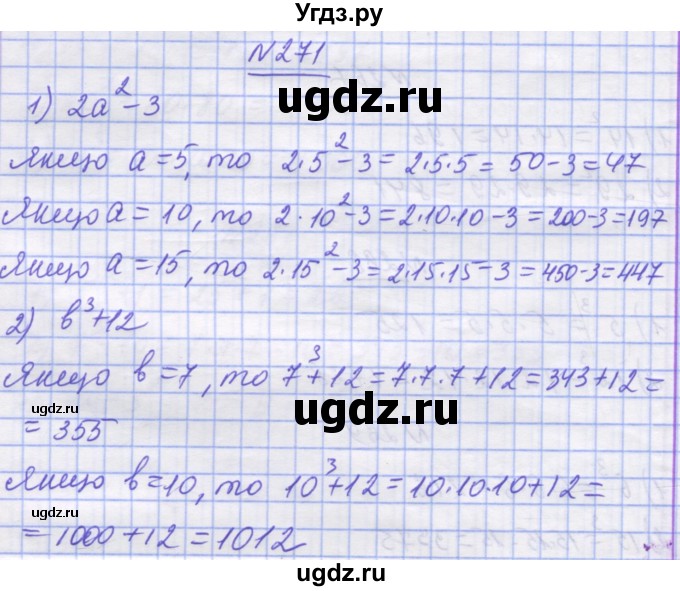 Угдз.ру
N271
1) 2a² - 3
ugdz.ru
Якщо a = 5, то 2·5² - 3 = 2·5·5 = 50 - 3 = 47
Якщо a = 10, то 2·10² - 3 = 2·10·10 - 3 = 200 - 3 = 197
Якщо a = 15, то 2·15² - 3 = 2·15·15 - 3 = 450 - 3 = 447
2) b³ + 12
Якщо b = 7, то 7³ + 12 = 7·7·7 + 12 = 343 + 12 =
ugdz.ru
ugdz.ru
= 355
Якщо b = 10, то 10³ + 12 = 10·10·10 + 12 =
= 1000 + 12 = 1012
ugdz.ru
ugdz.ru